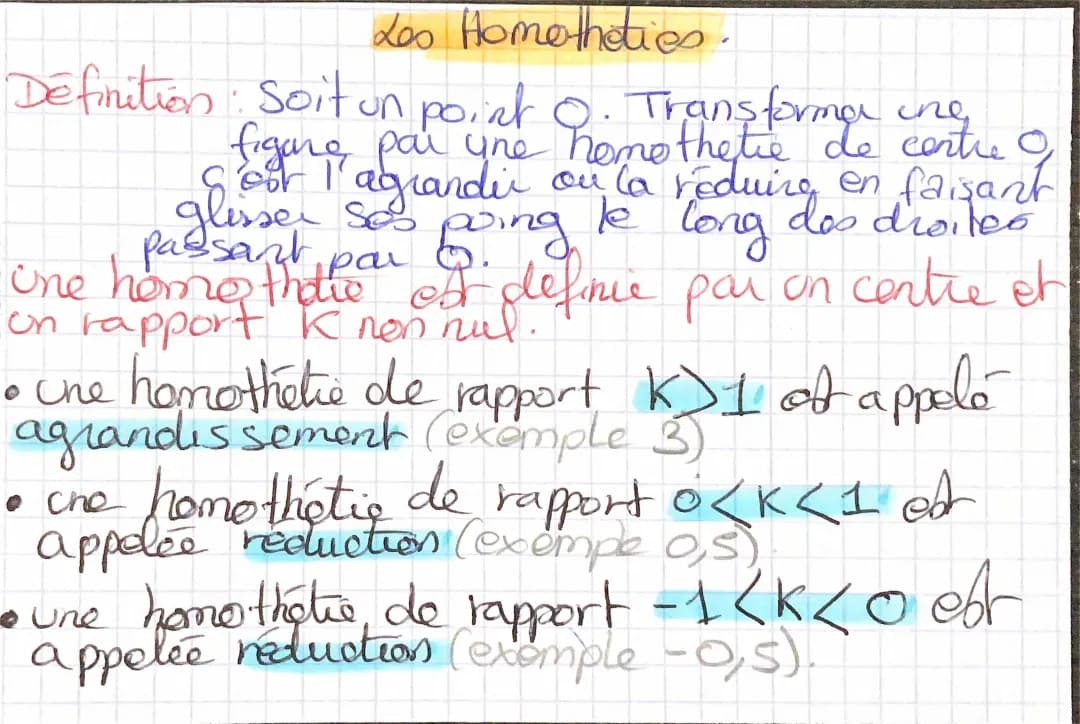 Les Homothéties.
Définition : Soit un point O. Transformer une
figure par une homothétie de centre O,
c'est l'agrandir ou la réduire en faisant
glisser ses poing le long des droites
passant par O.
une homothétie est définie par un centre et
un rapport K non nul.
• une homothétie de rapport K>1 est appelé
agrandissement (exemple 3)
• une homothétie de rapport 0<K<1 est
appelée réduction (exempe 0,5)
• une homothétie de rapport -1<K<0 est
appelée réduction (exemple -0,5).